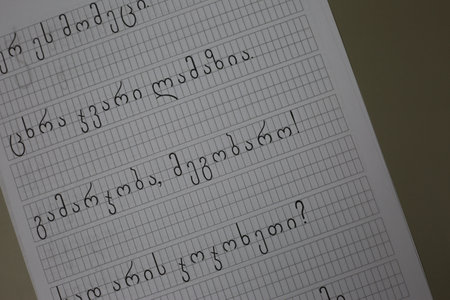 ეს მომეცი
ცხრა ჯვარი ლამაზია.
გამარჯობა, მეგობარო!
სად არის ჯოჯოხეთი?